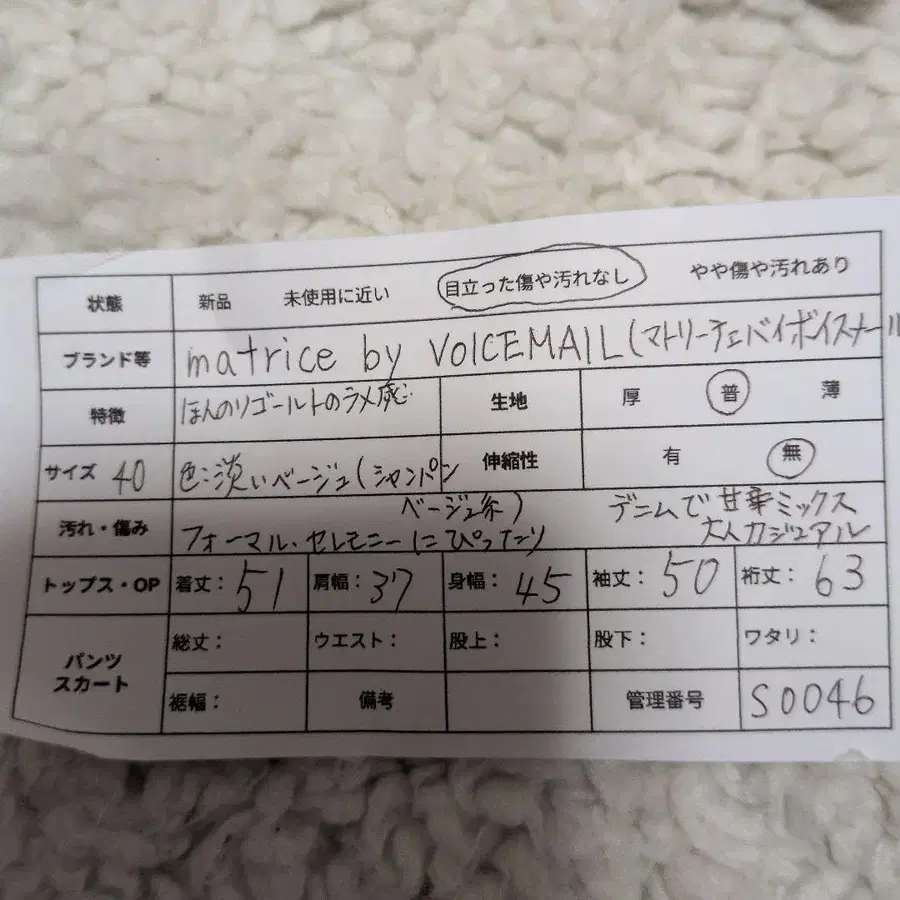 状態 新品 未使用に近い 目立った傷や汚れなし やや傷や汚れあり
ブランド等 matrice by VOICEMAIL(マトリーチェバイボイスメール
特徴 ほんのりゴールドのラメ感 生地 厚 普 薄
サイズ 40 色:淡いベージュ(シャンパン 伸縮性 有 無
ベージュ系) デニムで甘辛ミックス
汚れ・傷み フォーマル・セレモニーにぴったり 大人カジュアル
トップス・OP 着丈:51 肩幅:37 身幅:45 袖丈:50 裄丈:63
パンツ スカート 総丈: ウエスト: 股上: 股下: ワタリ:
裾幅: 備考 管理番号 S0046